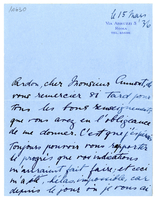 le 15 mars
36
Pardon, cher Monsieur Aumont, de
vous remercier si tard pour
tous les bons renseignements
que vous avez eu l'obligeance
de me donner. C'est que j'espérais
toujours pouvoir vous rapporter
le progrès que vos indications
m'auraient fait faire, et ceci
m'a été, hélas, impossible, car
depuis le jour où je vous ai